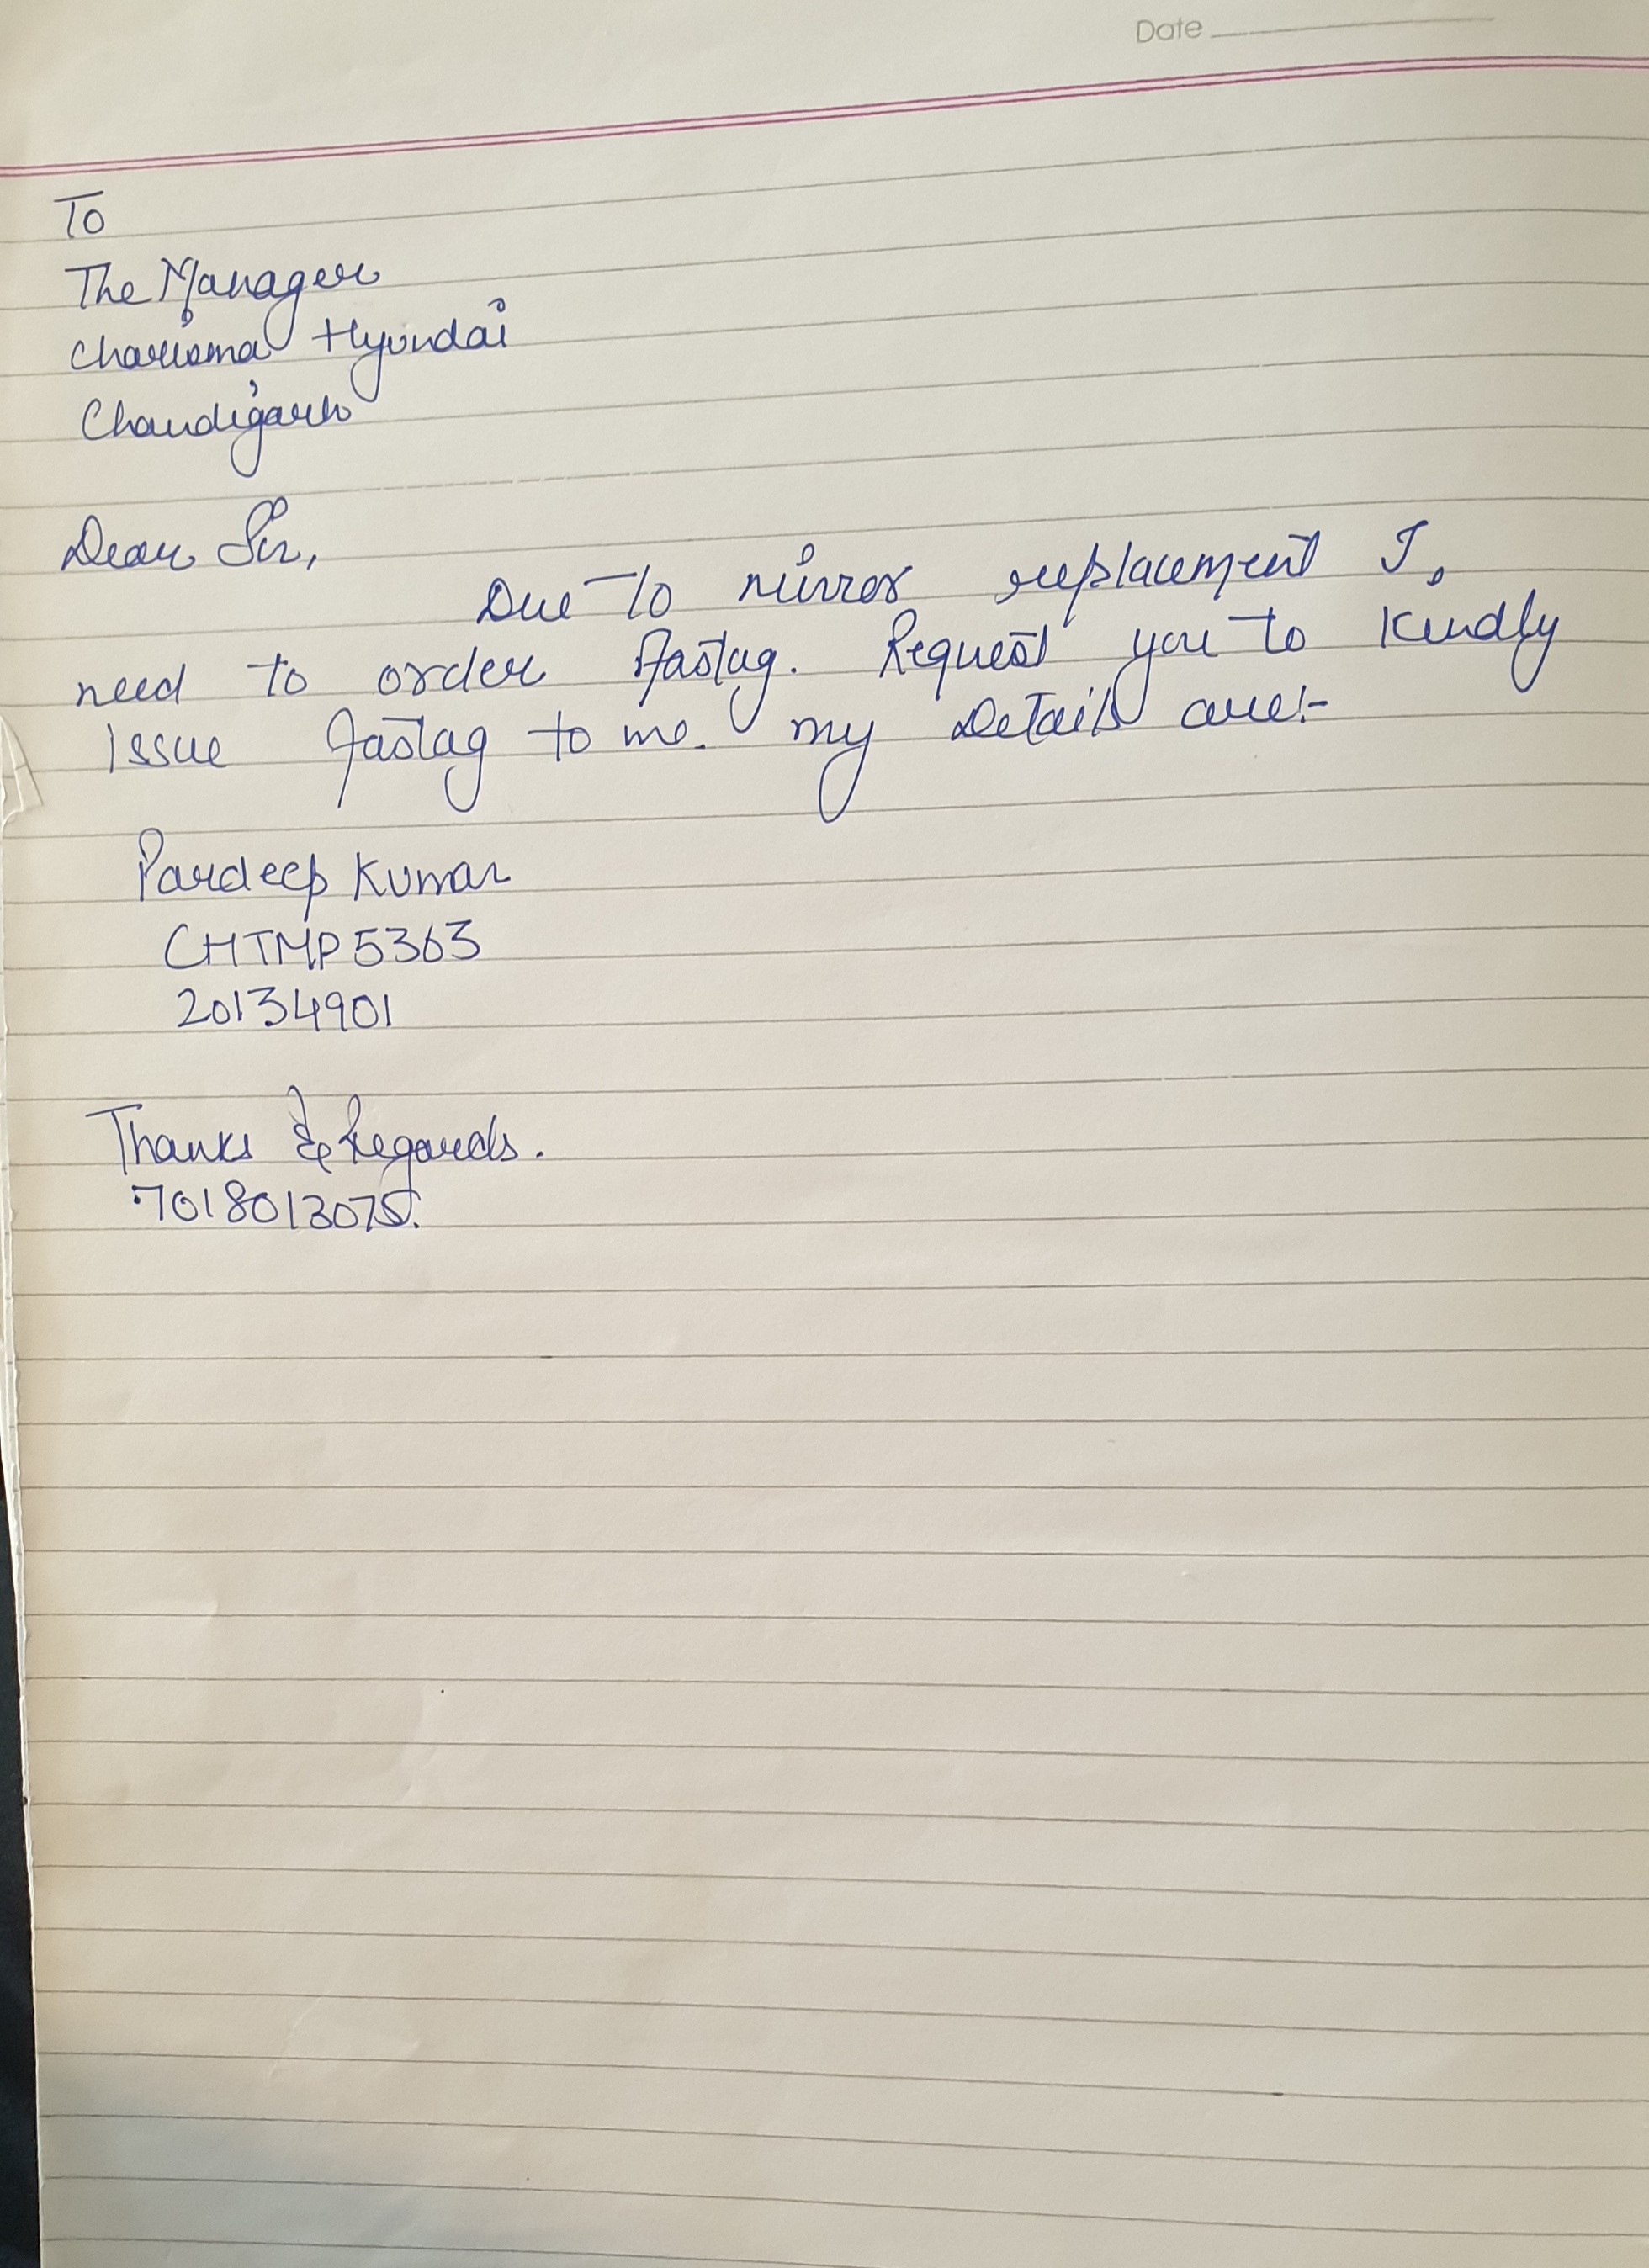 Date
To
The Manager
Charisma Hyundai
Chandigarh
Dear Sir,
Due to mirror replacement I,
need to order fastag. Request you to kindly
issue fastag to me. my Details are:-
Pardeep Kumar
CHTMP5363
20134901
Thanks & Regards.
7018013075.